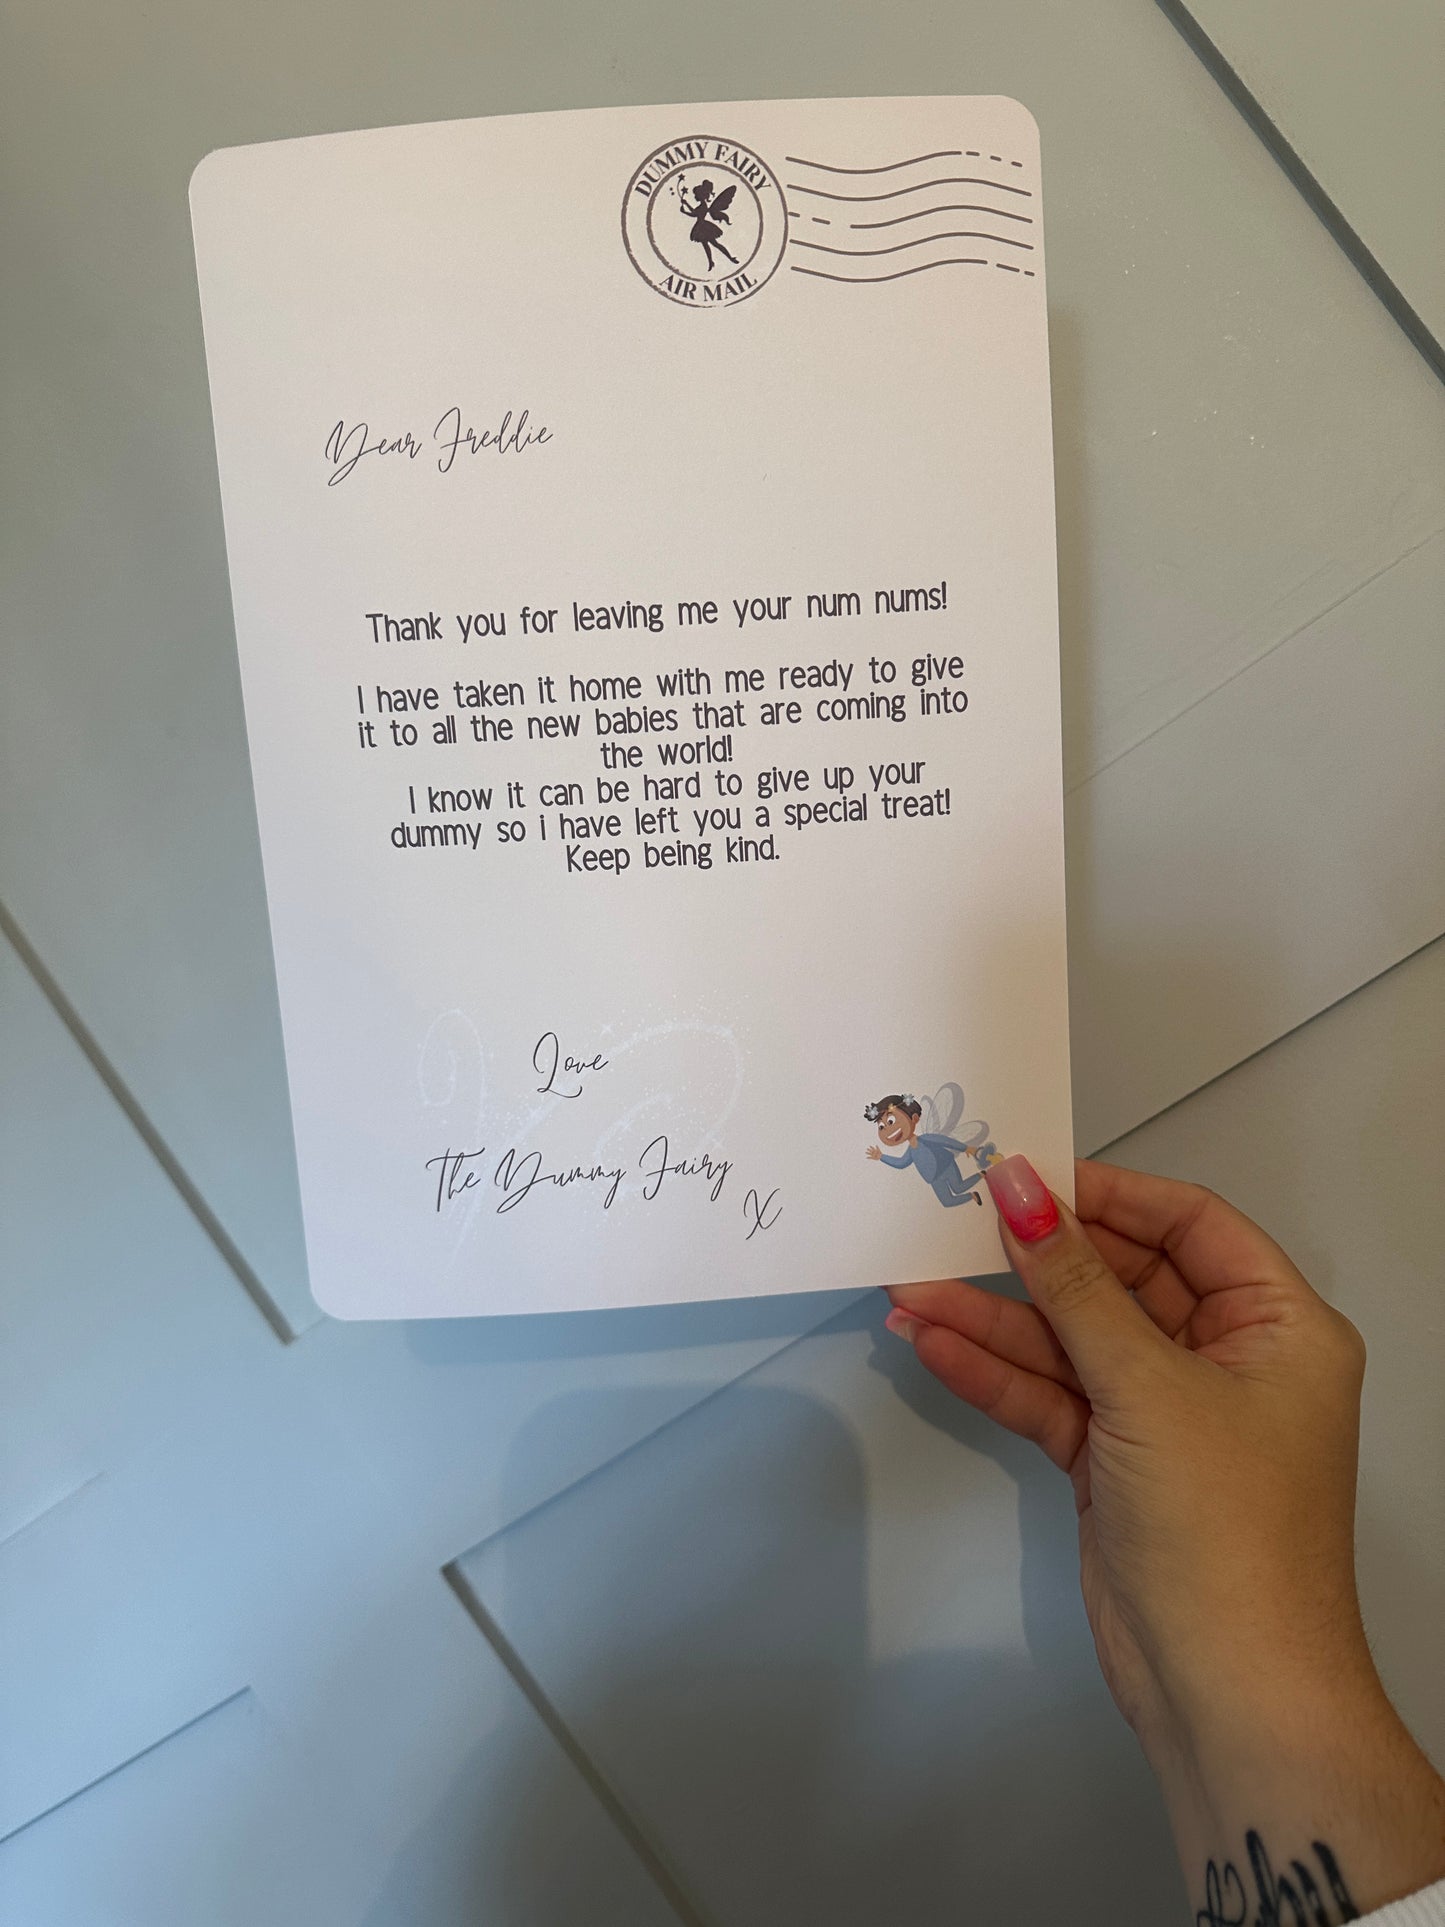 DUMMY FAIRY
AIR MAIL
Dear Freddie
Thank you for leaving me your num nums!
I have taken it home with me ready to give
it to all the new babies that are coming into
the world!
I know it can be hard to give up your
dummy so i have left you a special treat!
Keep being kind.
Love
The Dummy Fairy
X